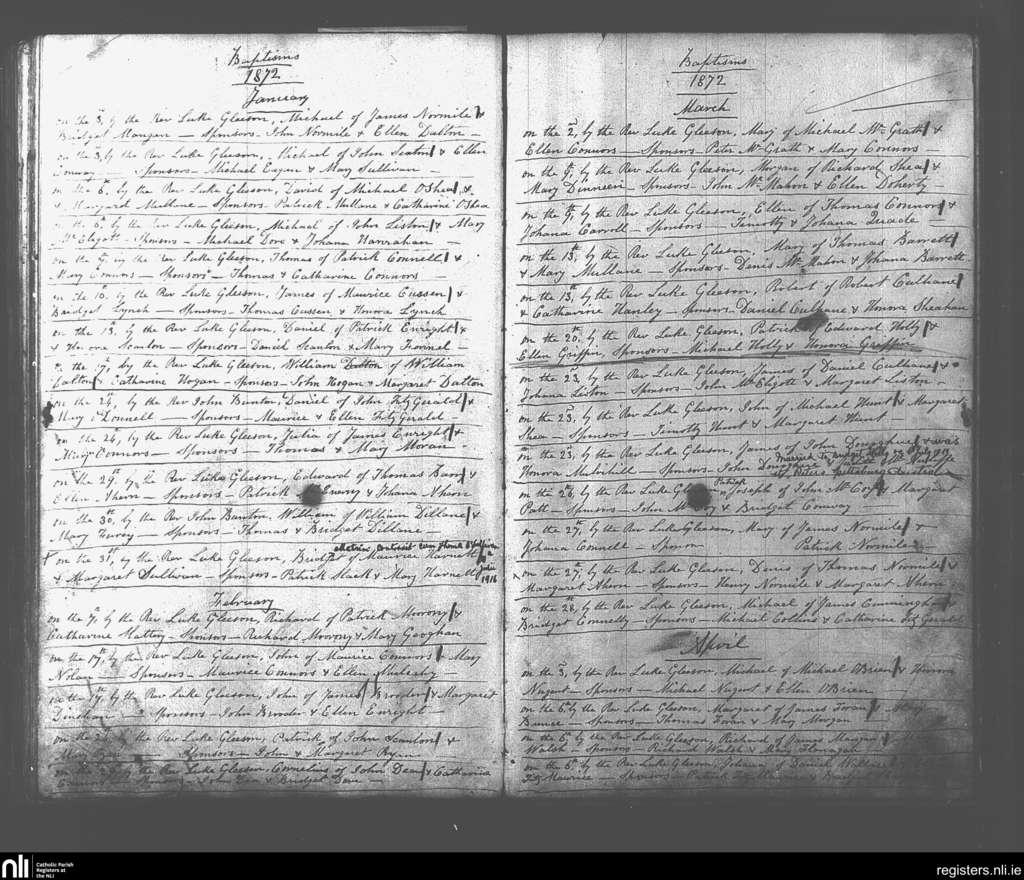 Baptisms
1872
January
on the 3, by the Rev Luke Gleeson, Michael of James Normile &
Bridget Mangan — Sponsors - John Normile & Ellen Dalton —
on the 3, by the Rev Luke Gleeson, Michael of John Sexton & Ellen
Conway — Sponsors — Michael & Mary Sullivan —
on the 6th, by the Rev Luke Gleeson, David of Michael OShea, &
& Margaret Mullane — Sponsors - Patrick Mullane & Catharine OShea
the 6th by the Rev Luke Gleeson, Michael of John Liston & Mary
Mc Eligott - Sponsors — Michael Dore & Johana Hanrahan —
on the 9, by the Rev Luke Gleeson, Thomas of Patrick Connell &
Mary Connors — Sponsors — Thomas & Catharine Connors —
on the 10, by the Rev Luke Gleeson, James of Maurice Cussen &
Bridget Lynch — Sponsors - Thomas Cussen & Honora Lynch
on the 13, by the Rev Luke Gleeson, Daniel of Patrick Enright &
& Honora Scanlon — Sponsors - Daniel Scanlon & Mary
the 17, by the Rev Luke Gleeson, William Dalton of William
Dalton & Catharine Hogan - Sponsors - John Hogan & Margaret Dalton
on the 24, by the Rev John Bunton, Daniel of John FitzGerald &
Mary ODonnell — Sponsors — Maurice & Ellen FitzGerald —
on the 26, by the Rev Luke Gleeson, Julia of James Enright &
Mary Connors — Sponsors — Thomas & Mary Moran —
on the 29th by the Rev Luke Gleeson, Edward of Thomas Barry &
Ellen Ahern — Sponsors — Patrick & Johana Ahern
on the 30, by the Rev John Bunton, William of William Dillane &
Mary — Sponsors — Thomas & Bridget Dillane
Matrim contraxit cum
on the 31st, by the Rev Luke Gleeson, Bridget of Maurice Harnett
& Margaret Sullivan — Sponsors - Patrick Slack & Mary Harnett
1916
February
on the 7, by the Rev Luke Gleeson, Richard of Patrick Morony &
Catharine — Sponsors — Richard Morony & Mary Geoghan
on the 17th, by the Rev Luke Gleeson, John of Maurice Connors & Mary
Nolan — Sponsors — Maurice Connors & Ellen Mulcahy —
on the by the Rev Luke Gleeson, John of James Broder & Margaret
Sponsors - John Broder & Ellen Enright —
on the by the Rev Luke Gleeson, Patrick of John Scanlon &
Sponsors — John & Margaret
on the by the Rev Luke Gleeson, Cornelius of John Dean & Catharine
Connors & Bridget
Baptisms
1872
March
on the 2, by the Rev Luke Gleeson, Mary of Michael McGrath &
Ellen Connors — Sponsors - Peter McGrath & Mary Connors —
on the 9, by the Rev Luke Gleeson, Morgan of Richard Shea &
Mary Dinneen — Sponsors — John McMahon & Ellen Doherty —
on the 9, by the Rev Luke Gleeson, Ellen of Thomas Connors &
Johana Carroll — Sponsors — Timothy & Johana Quade —
on the 13, by the Rev Luke Gleeson, Mary of Thomas Barrett
& Mary Mullane — Sponsors - Denis McMahon & Johana Barrett
on the 13, by the Rev Luke Gleeson, Robert of Robert Culhane
& Catharine Hanley — Sponsors - Daniel Culhane & Honora Sheahan
on the 20, by the Rev Luke Gleeson, Patrick of Edward Holly &
Ellen Griffin, Sponsors - Michael Holly & Honora Griffin
on the 23, by the Rev Luke Gleeson, James of Daniel Culhane &
Johana Liston — Sponsors — John McEligott & Margaret Liston —
on the 23, by the Rev Luke Gleeson, John of Michael Hunt & Margaret
Shea — Sponsors — Timothy Hunt & Margaret Hunt
on the 23, by the Rev Luke Gleeson, James of John Donoghue & was
married to
Honora Mulvihill — Sponsors - John
Patrick
on the 26, by the Rev Luke Gleeson, Joseph of John McCoy & Margaret
Patt — Sponsors — John McCoy & Bridget Conway
on the 27, by the Rev Luke Gleeson, Mary of James Normile &
Johana Connell — Sponsor Patrick Normile
on the 27, by the Rev Luke Gleeson, Denis of Thomas Normile &
Margaret Ahern — Sponsors — Henry Normile & Margaret Ahern
on the 28, by the Rev Luke Gleeson, Michael of James Cunningham &
Bridget Connelly — Sponsors — Michael Collins & Catharine FitzGerald
April
on the 3, by the Rev Luke Gleeson, Michael of Michael OBrien & Honora
Nugent — Sponsors — Michael Nugent & Ellen OBrien
on the 6, by the Rev Luke Gleeson, Margaret of James
— Sponsors — Thomas & Mary Morgan
on the 6, by the Rev Luke Gleeson, Richard of James
Walsh — Sponsors — Richard Walsh & Mary Flanagan
on the 6, by the Rev Luke Gleeson, Johana of Daniel
FitzMaurice — Sponsors — Patrick FitzMaurice & Bridget
nli
Catholic Parish
Registers at
the NLI
registers.nli.ie